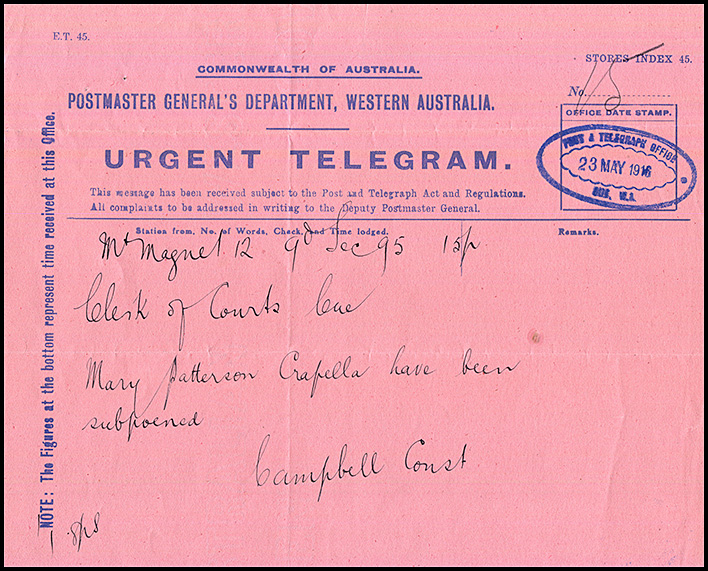 E.T. 45.
STORES INDEX 45.
COMMONWEALTH OF AUSTRALIA.
No. 15
POSTMASTER GENERAL'S DEPARTMENT, WESTERN AUSTRALIA.
OFFICE DATE STAMP.
POST & TELEGRAPH OFFICE
23 MAY 1916
W.A.
URGENT TELEGRAM.
This message has been received subject to the Post and Telegraph Act and Regulations.
All complaints to be addressed in writing to the Deputy Postmaster General.
Station from, No. of Words, Check, and Time lodged.
Remarks.
Mt Magnet 12 9d Sec 95
Clerk of Courts Cue
Mary Patterson Crapella have been
subpoened
Campbell Const
NOTE: The Figures at the bottom represent time received at this Office.